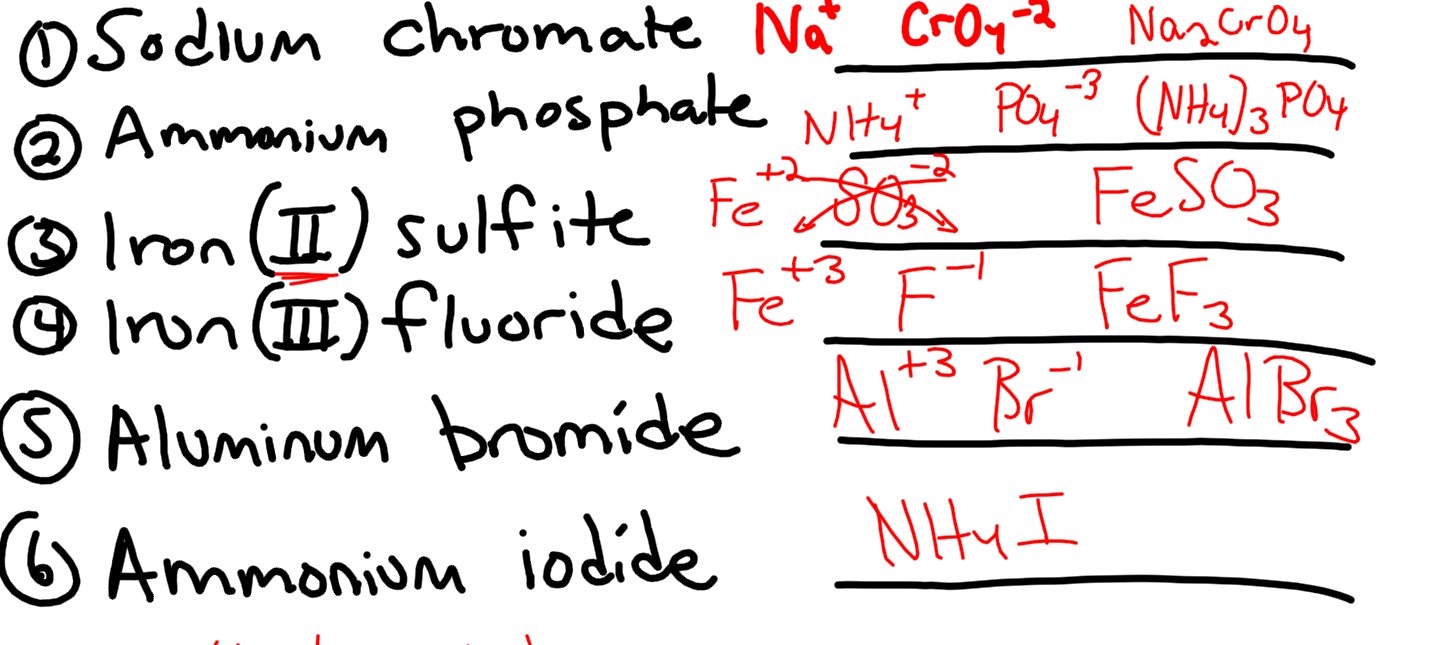 ① Sodium chromate Na⁺ CrO₄⁻² Na₂CrO₄
② Ammonium phosphate NH₄⁺ PO₄⁻³ (NH₄)₃PO₄
③ Iron (II) sulfite Fe⁺² SO₃⁻² FeSO₃
④ Iron (III) fluoride Fe⁺³ F⁻¹ FeF₃
⑤ Aluminum bromide Al⁺³ Br⁻¹ AlBr₃
⑥ Ammonium iodide NH₄I